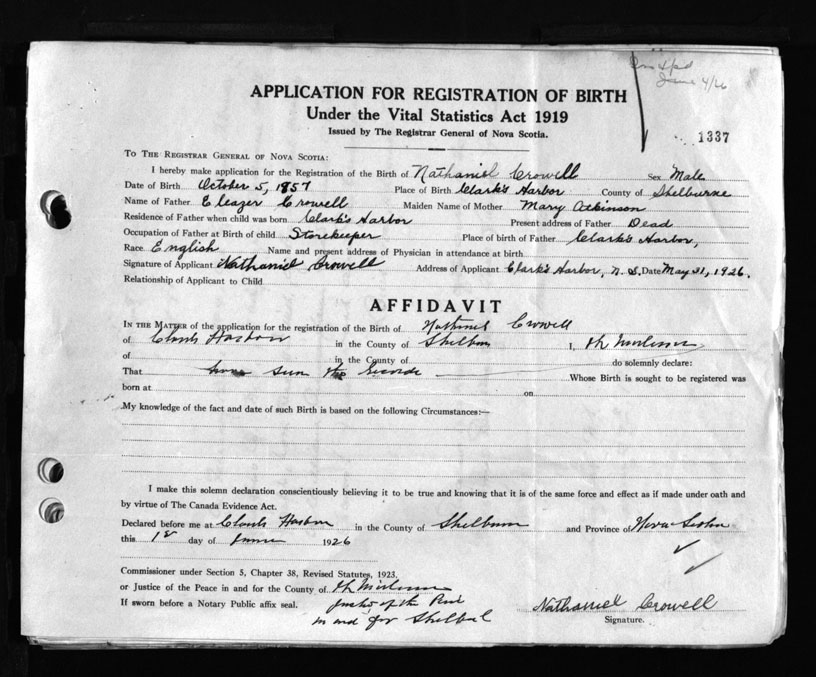 June 4/26
APPLICATION FOR REGISTRATION OF BIRTH
Under the Vital Statistics Act 1919
Issued by The Registrar General of Nova Scotia.
1337
TO THE REGISTRAR GENERAL OF NOVA SCOTIA:
I hereby make application for the Registration of the Birth of Nathaniel Crowell Sex Male
Date of Birth October 5, 1857 Place of Birth Clark's Harbor County of Shelburne
Name of Father Eleazer Crowell Maiden Name of Mother Mary Atkinson
Residence of Father when child was born Clark's Harbor Present address of Father Dead
Occupation of Father at Birth of child Storekeeper Place of birth of Father Clark's Harbor,
Race English Name and present address of Physician in attendance at birth
Signature of Applicant Nathaniel Crowell Address of Applicant Clark's Harbor, N. S. Date May 31, 1926.
Relationship of Applicant to Child
AFFIDAVIT
IN THE MATTER of the application for the registration of the Birth of Nathaniel Crowell
of Clarks Harbor in the County of Shelburne I,
of in the County of do solemnly declare:
That have seen the records Whose Birth is sought to be registered was
born at on
My knowledge of the fact and date of such Birth is based on the following Circumstances:—
I make this solemn declaration conscientiously believing it to be true and knowing that it is of the same force and effect as if made under oath and
by virtue of The Canada Evidence Act.
Declared before me at Clarks Harbor in the County of Shelburne and Province of Nova Scotia
this day of June 1926
Commissioner under Section 5, Chapter 38, Revised Statutes, 1923.
or Justice of the Peace in and for the County of
If sworn before a Notary Public affix seal. Justice of the Peace
in and for
Nathaniel Crowell
Signature.